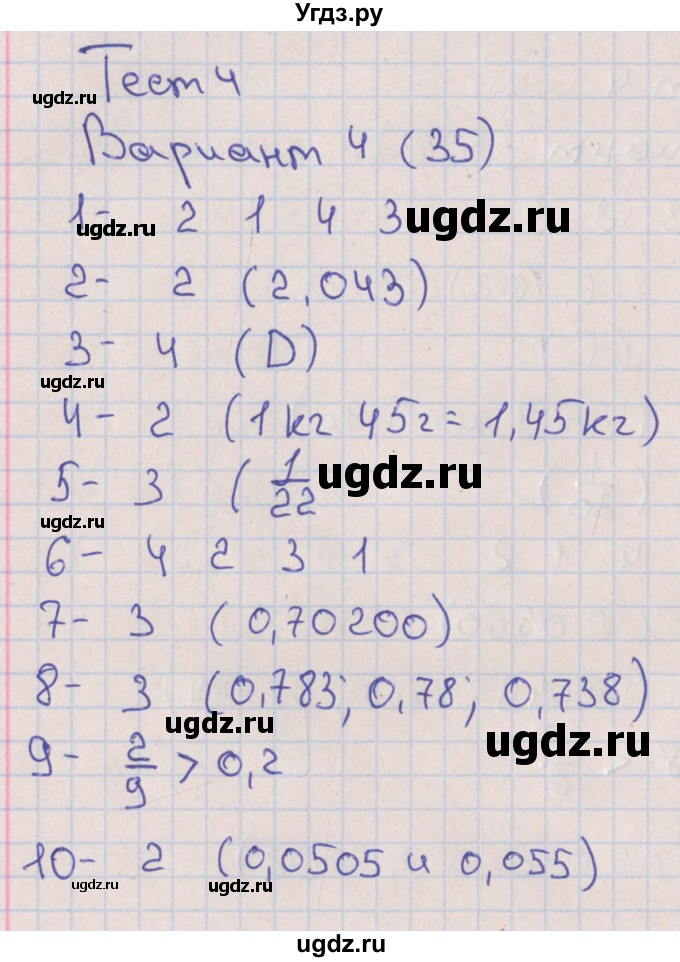 Угдз.ру
Тест 4
ugdz.ru
Вариант 4 (35)
1- 2 1 4 3 ugdz.ru
ugdz.ru
2- 2 (2,043)
3- 4 (D)
ugdz.ru
4- 2 (1 кг 45г = 1,45 кг)
5- 3 ( 1/22 ugdz.ru
ugdz.ru
6- 4 2 3 1
7- 3 (0,70200)
8- 3 (0,783; 0,78; 0,738)
ugdz.ru
ugdz.ru
9- 2/9 > 0,2
10- 2 (0,0505 и 0,055)
ugdz.ru ugdz.ru
ugdz.ru